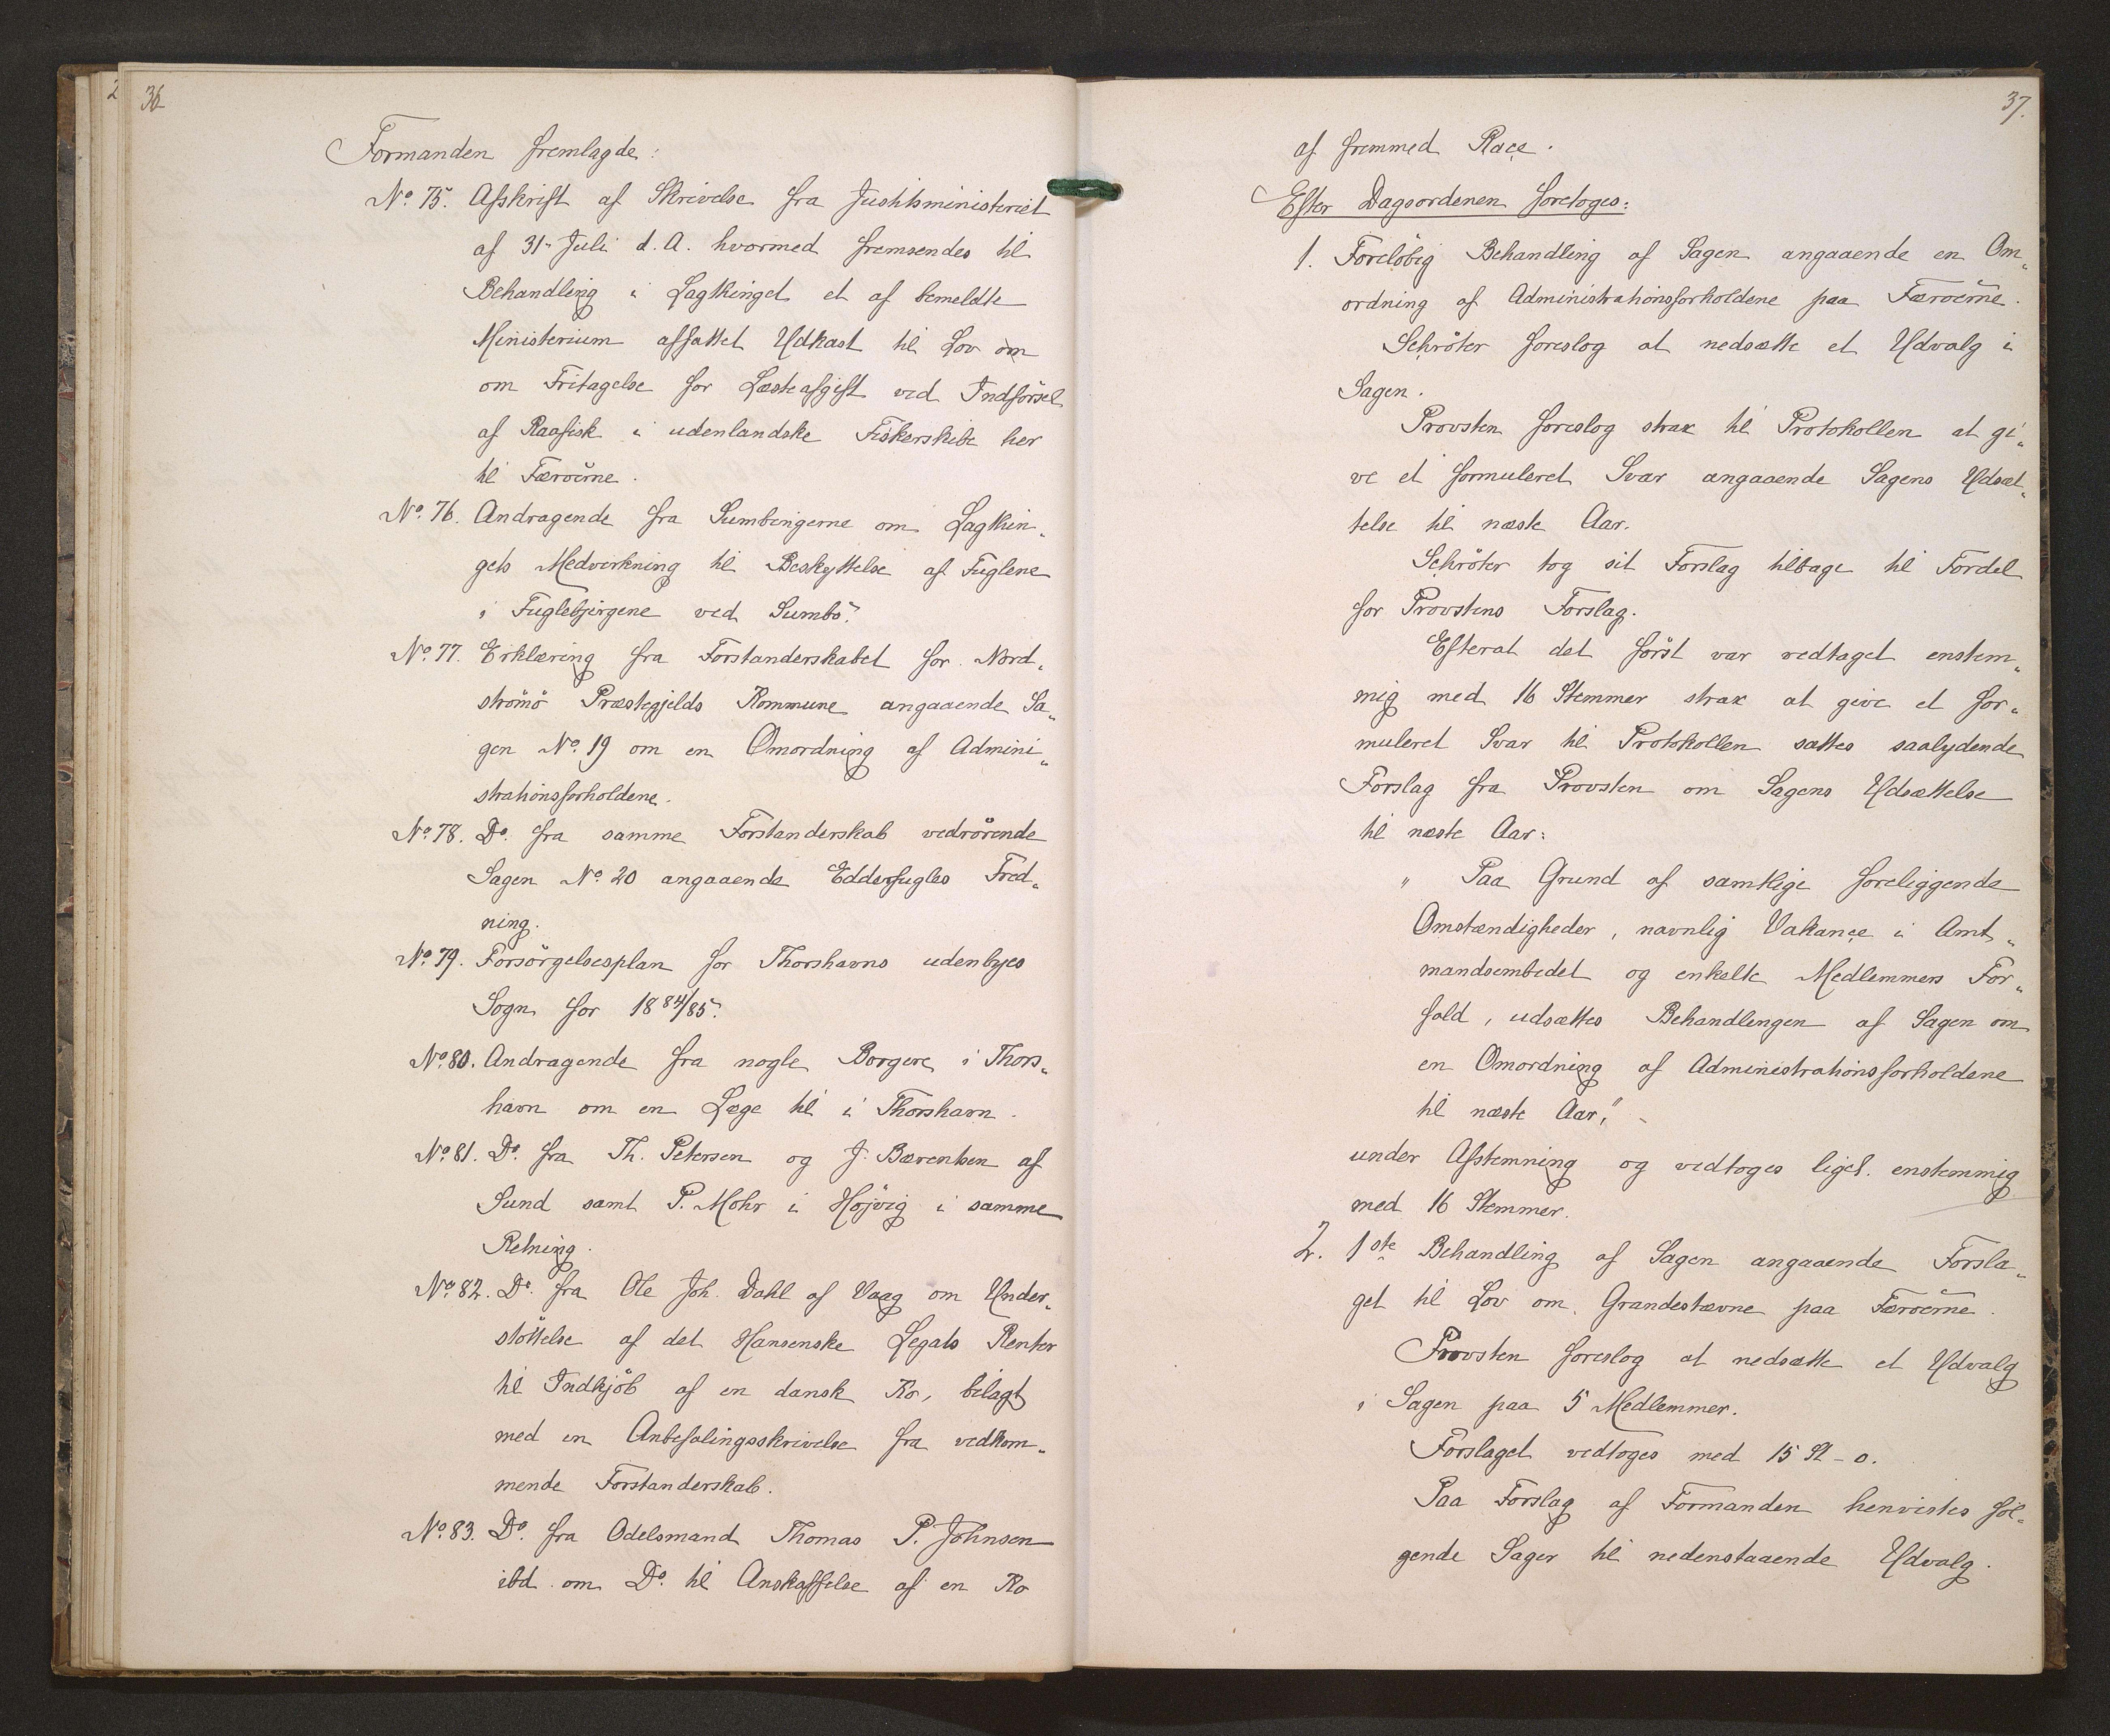 36
Formanden fremlagde:
No. 75. Afskrift af Skrivelse fra Justitsministeriet
af 31. Juli d. A. hvormed fremsendes til
Behandling i Lagthinget et af bemeldte
Ministerium affattet Udkast til Lov om
om Fritagelse for Læsteafgift ved Indförsel
af Raafisk i udenlandske Fiskerskibe her
til Færoerne.
No. 76. Andragende fra Sumbingerne om Lagthin„
gets Medvirkning til Beskyttelse af Fuglene
i Fuglebjirgene ved Sumbö.
No. 77. Erklæring fra Forstanderskabet for Nord„
strömö Præstegjelds Kommune angaaende Sa„
gen No. 19 om en Omordning af Admini„
strationsforholdene.
No. 78. Do. fra samme Forstanderskab vedrörende
Sagen No. 20 angaaende Edderfugles Fred„
ning.
No. 79. Forsörgelsesplan for Thorshavns udenbyes
Sogn for 1884/85.
No. 80. Andragende fra nogle Borgere i Thors„
havn om en Læge til i Thorshavn.
No. 81. Do. fra Th. Petersen og J. Bærentsen af
Sund samt P. Mohr i Höjvig i samme
Retning.
No. 82. Do. fra Ole Joh. Dahl af Vaag om Under„
stöttelse af det Hansenske Legats Renter
til Indkjöb af en dansk Ko, bilagt
med en Anbefalingsskrivelse fra vedkom„
mende Forstanderskab.
No. 83. Do. fra Odelsmand Thomas P. Johnsen
ibd. om Do. til Anskaffelse af en Ko
37.
af fremmed Race.
Efter Dagsordenen foretoges:
1. Forelöbig Behandling af Sagen angaaende en Om„
ordning af Administrationsforholdene paa Færoerne.
Schröter foreslog at nedsætte et Udvalg i
Sagen.
Provsten foreslog strax til Protokollen at gi„
ve et formuleret Svar angaaende Sagens Udsæt„
telse til næste Aar.
Schröter tog sit Forslag tilbage til Fordel
for Provstens Forslag.
Efterat det först var vedtaget enstem„
mig med 16 Stemmer strax at give et for„
muleret Svar til Protokollen sattes saalydende
Forslag fra Provsten om Sagens Udsættelse
til næste Aar:
" Paa Grund af samtlige foreliggende
Omstændigheder, navnlig Vakance i Amt„
mandsembedet og enkelte Medlemmers For„
fald, udsættes Behandlingen af Sagen om
en Omordning af Administrationsforholdene
til næste Aar," -
under Afstemning og vedtoges ligel. enstemmig
med 16 Stemmer.
2. 1ste Behandling af Sagen angaaende Forsla„
get til Lov om Grandestævne paa Færoerne.
Provsten foreslog at nedsætte et Udvalg
i Sagen paa 5 Medlemmer.
Forslaget vedtoges med 15 St - 0.
Paa Forslag af Formanden henvistes föl„
gende Sager til nedenstaaende Udvalg.